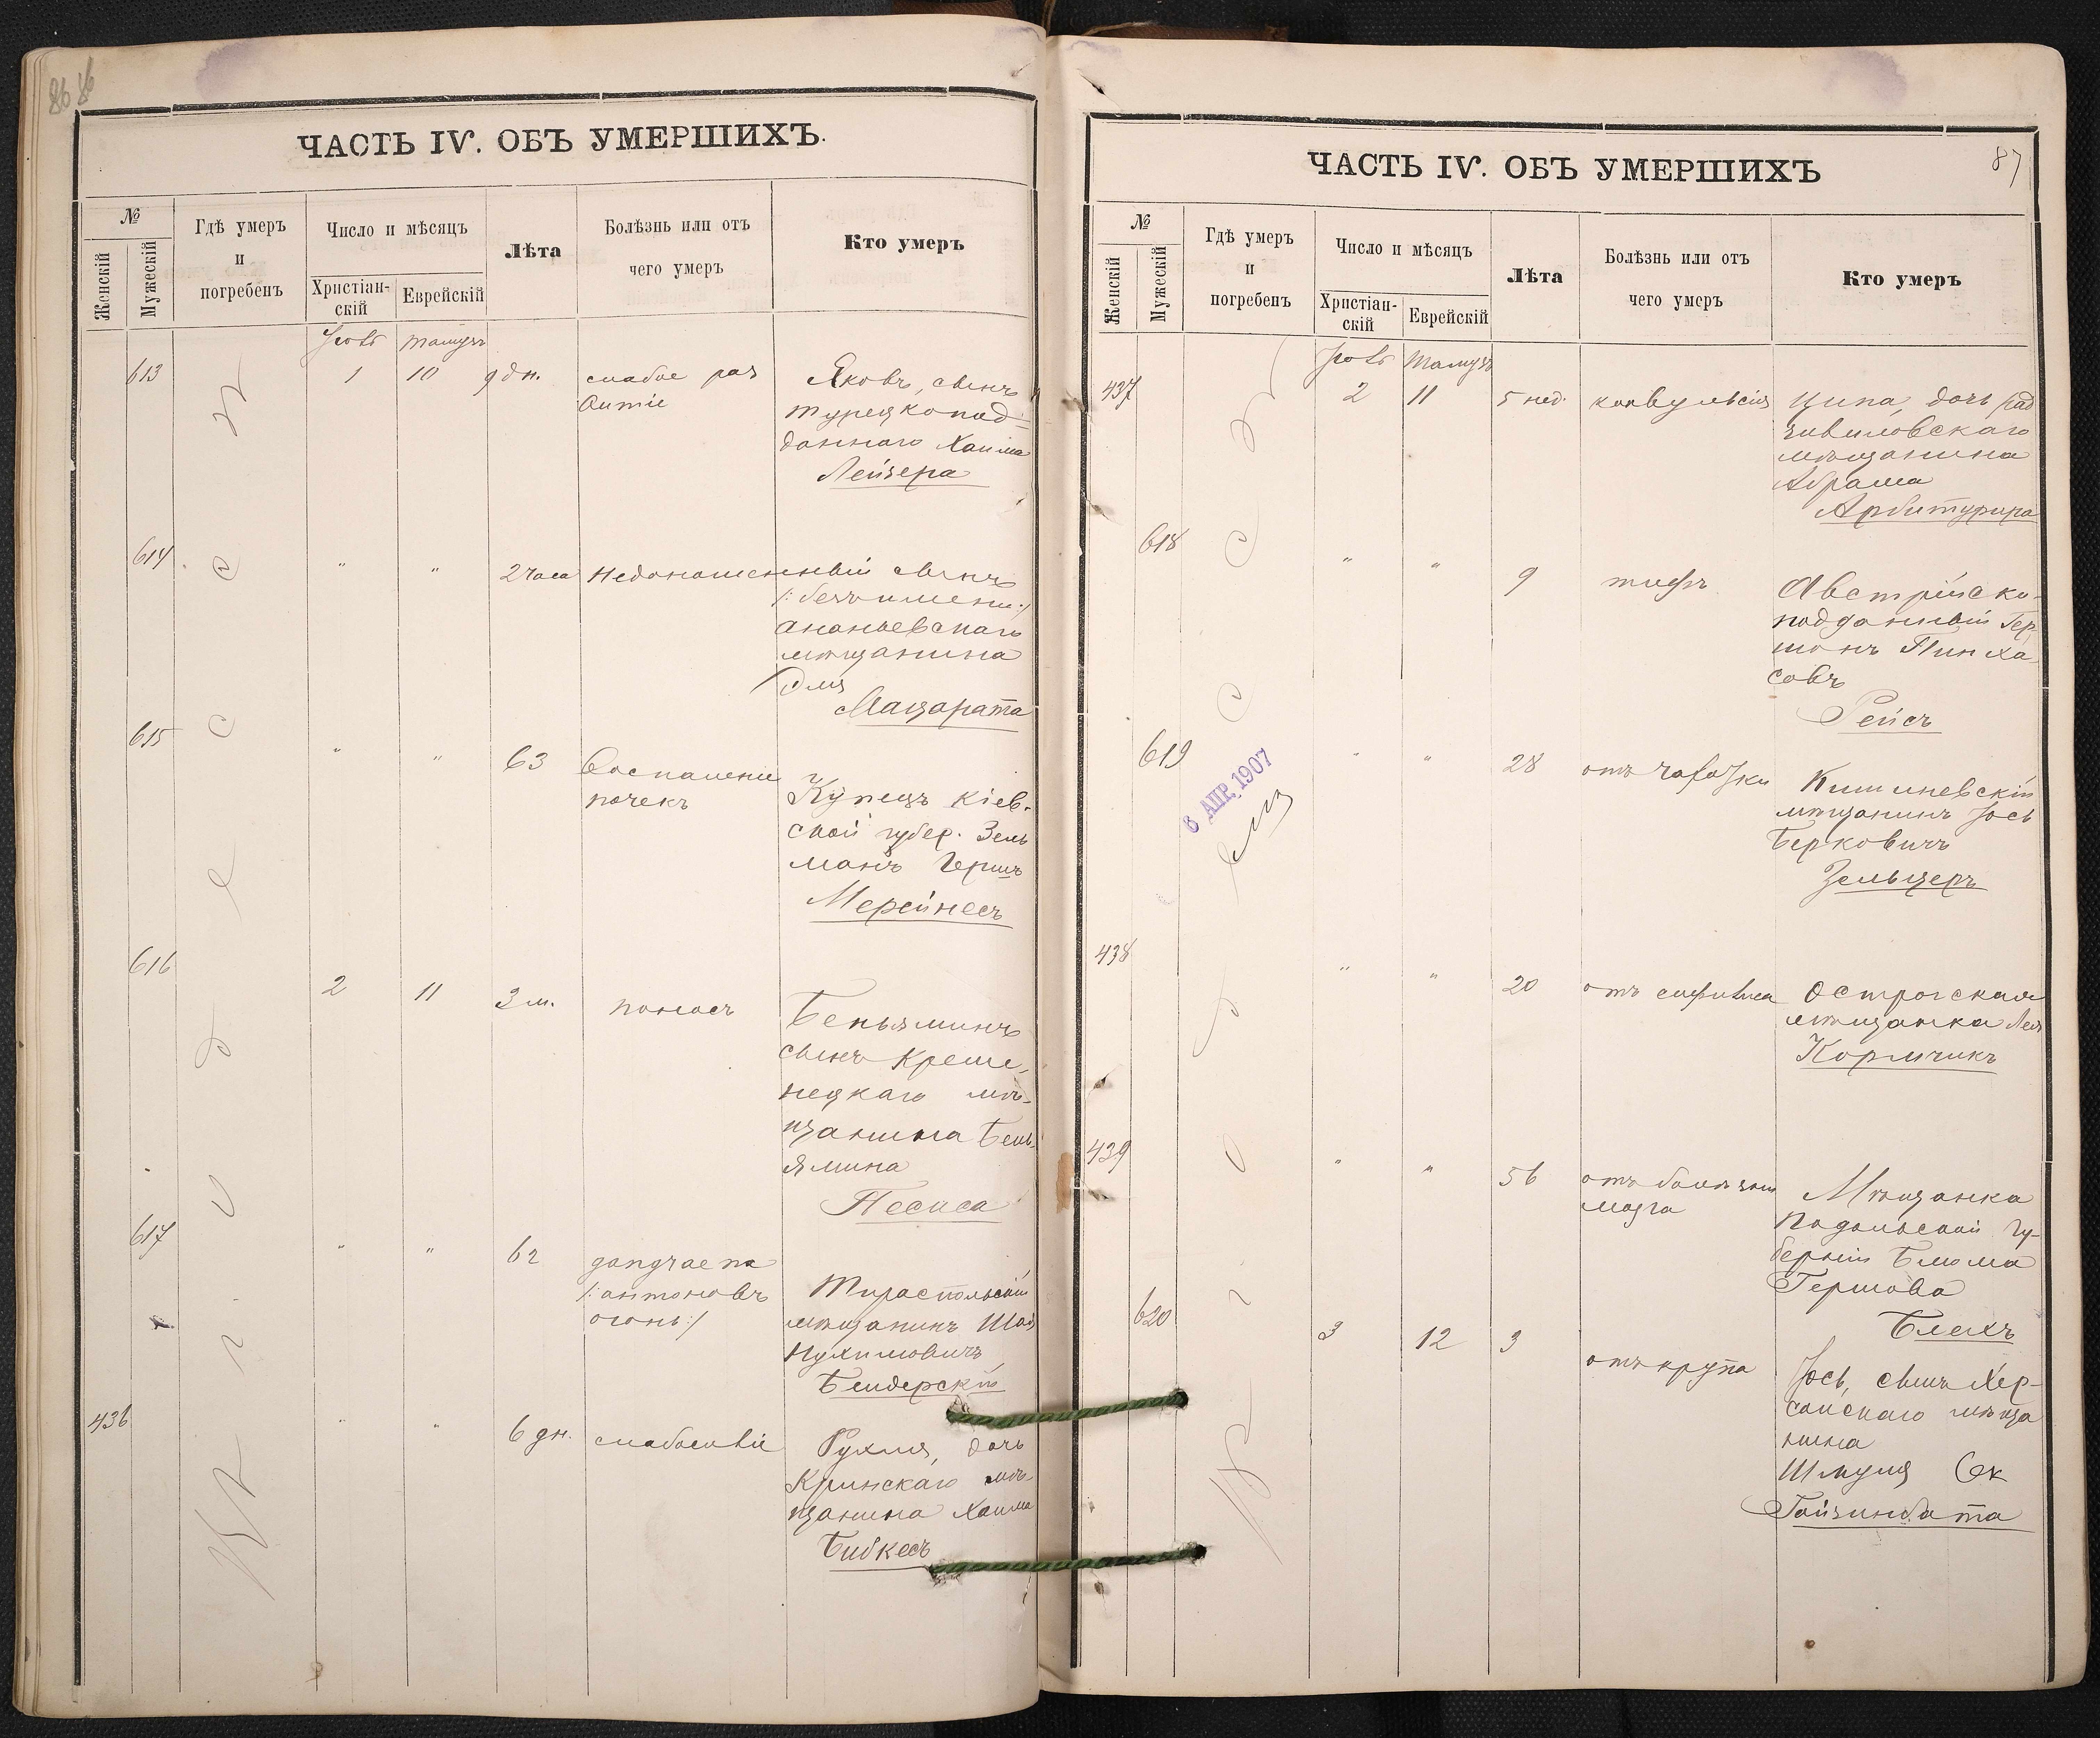 86 86
ЧАСТЬ IV. ОБЪ УМЕРШИХЪ.
№
Женскій
Мужескій
Гдѣ умеръ
и
погребенъ
Число и мѣсяцъ
Христіан-
скій
Еврейскій
Лѣта
Болѣзнь или отъ
чего умеръ
Кто умеръ
Іюль Тамузъ
613 1 10 9 дн. слабое раз Яковъ, сынъ
витіе турецкопод=
даннаго Хаима
Лейзера
614 " " 2 часа Недоношенный сынъ
/:безъ имени:/
Ананьевскаго
мѣщанина
615 " " 63 Воспаленіе
почекъ Купецъ Кіев-
ской губер. Зель
манъ Гершъ
Мерейнесъ
616 2 11 3 м. поносъ Беньяминъ
сынъ Креме-
нецкаго мѣ-
щанина Бень-
ямина
Песиса
617 " " 62 gangraena
/:антоновъ Тираспольскій
огонь:/ мѣщанинъ
Нухимовичъ
Бендерскій
436 " " 6 дн. слабосиліе Рухля, дочь
мѣ-
щанина Хаима
Бибкесъ
Въ г. Одессѣ
87
ЧАСТЬ IV. ОБЪ УМЕРШИХЪ
№
Женскій
Мужескій
Гдѣ умеръ
и
погребенъ
Число и мѣсяцъ
Христіан-
скій
Еврейскій
Лѣта
Болѣзнь или отъ
чего умеръ
Кто умеръ
Іюль Тамузъ
437 2 11 5 нед. конвульсія Ципа, дочь рад
зивиловскаго
мѣщанина
Абрама
Арбитурира
618 " " 9 тифъ Австрійско-
подданный Гер
шонъ Пинха
совъ
Рейсъ
619 " " 28 отъ чахотки Кишиневскій
мѣщанинъ Іось
Берковичъ
Зельцеръ
6 АПР. 1907
438 " " 20 отъ сифилиса Острогская
мѣщанка Лея
Кормчикъ
439 " " 56 отъ болѣзни
мозга Мѣщанка
Подольской Гу-
берніи Блюма
Гершова
Блехъ
620 3 12 3 отъ крупа Іось, сынъ Хер-
сонскаго мѣща
нина
Шмуля
Въ г. Одессѣ